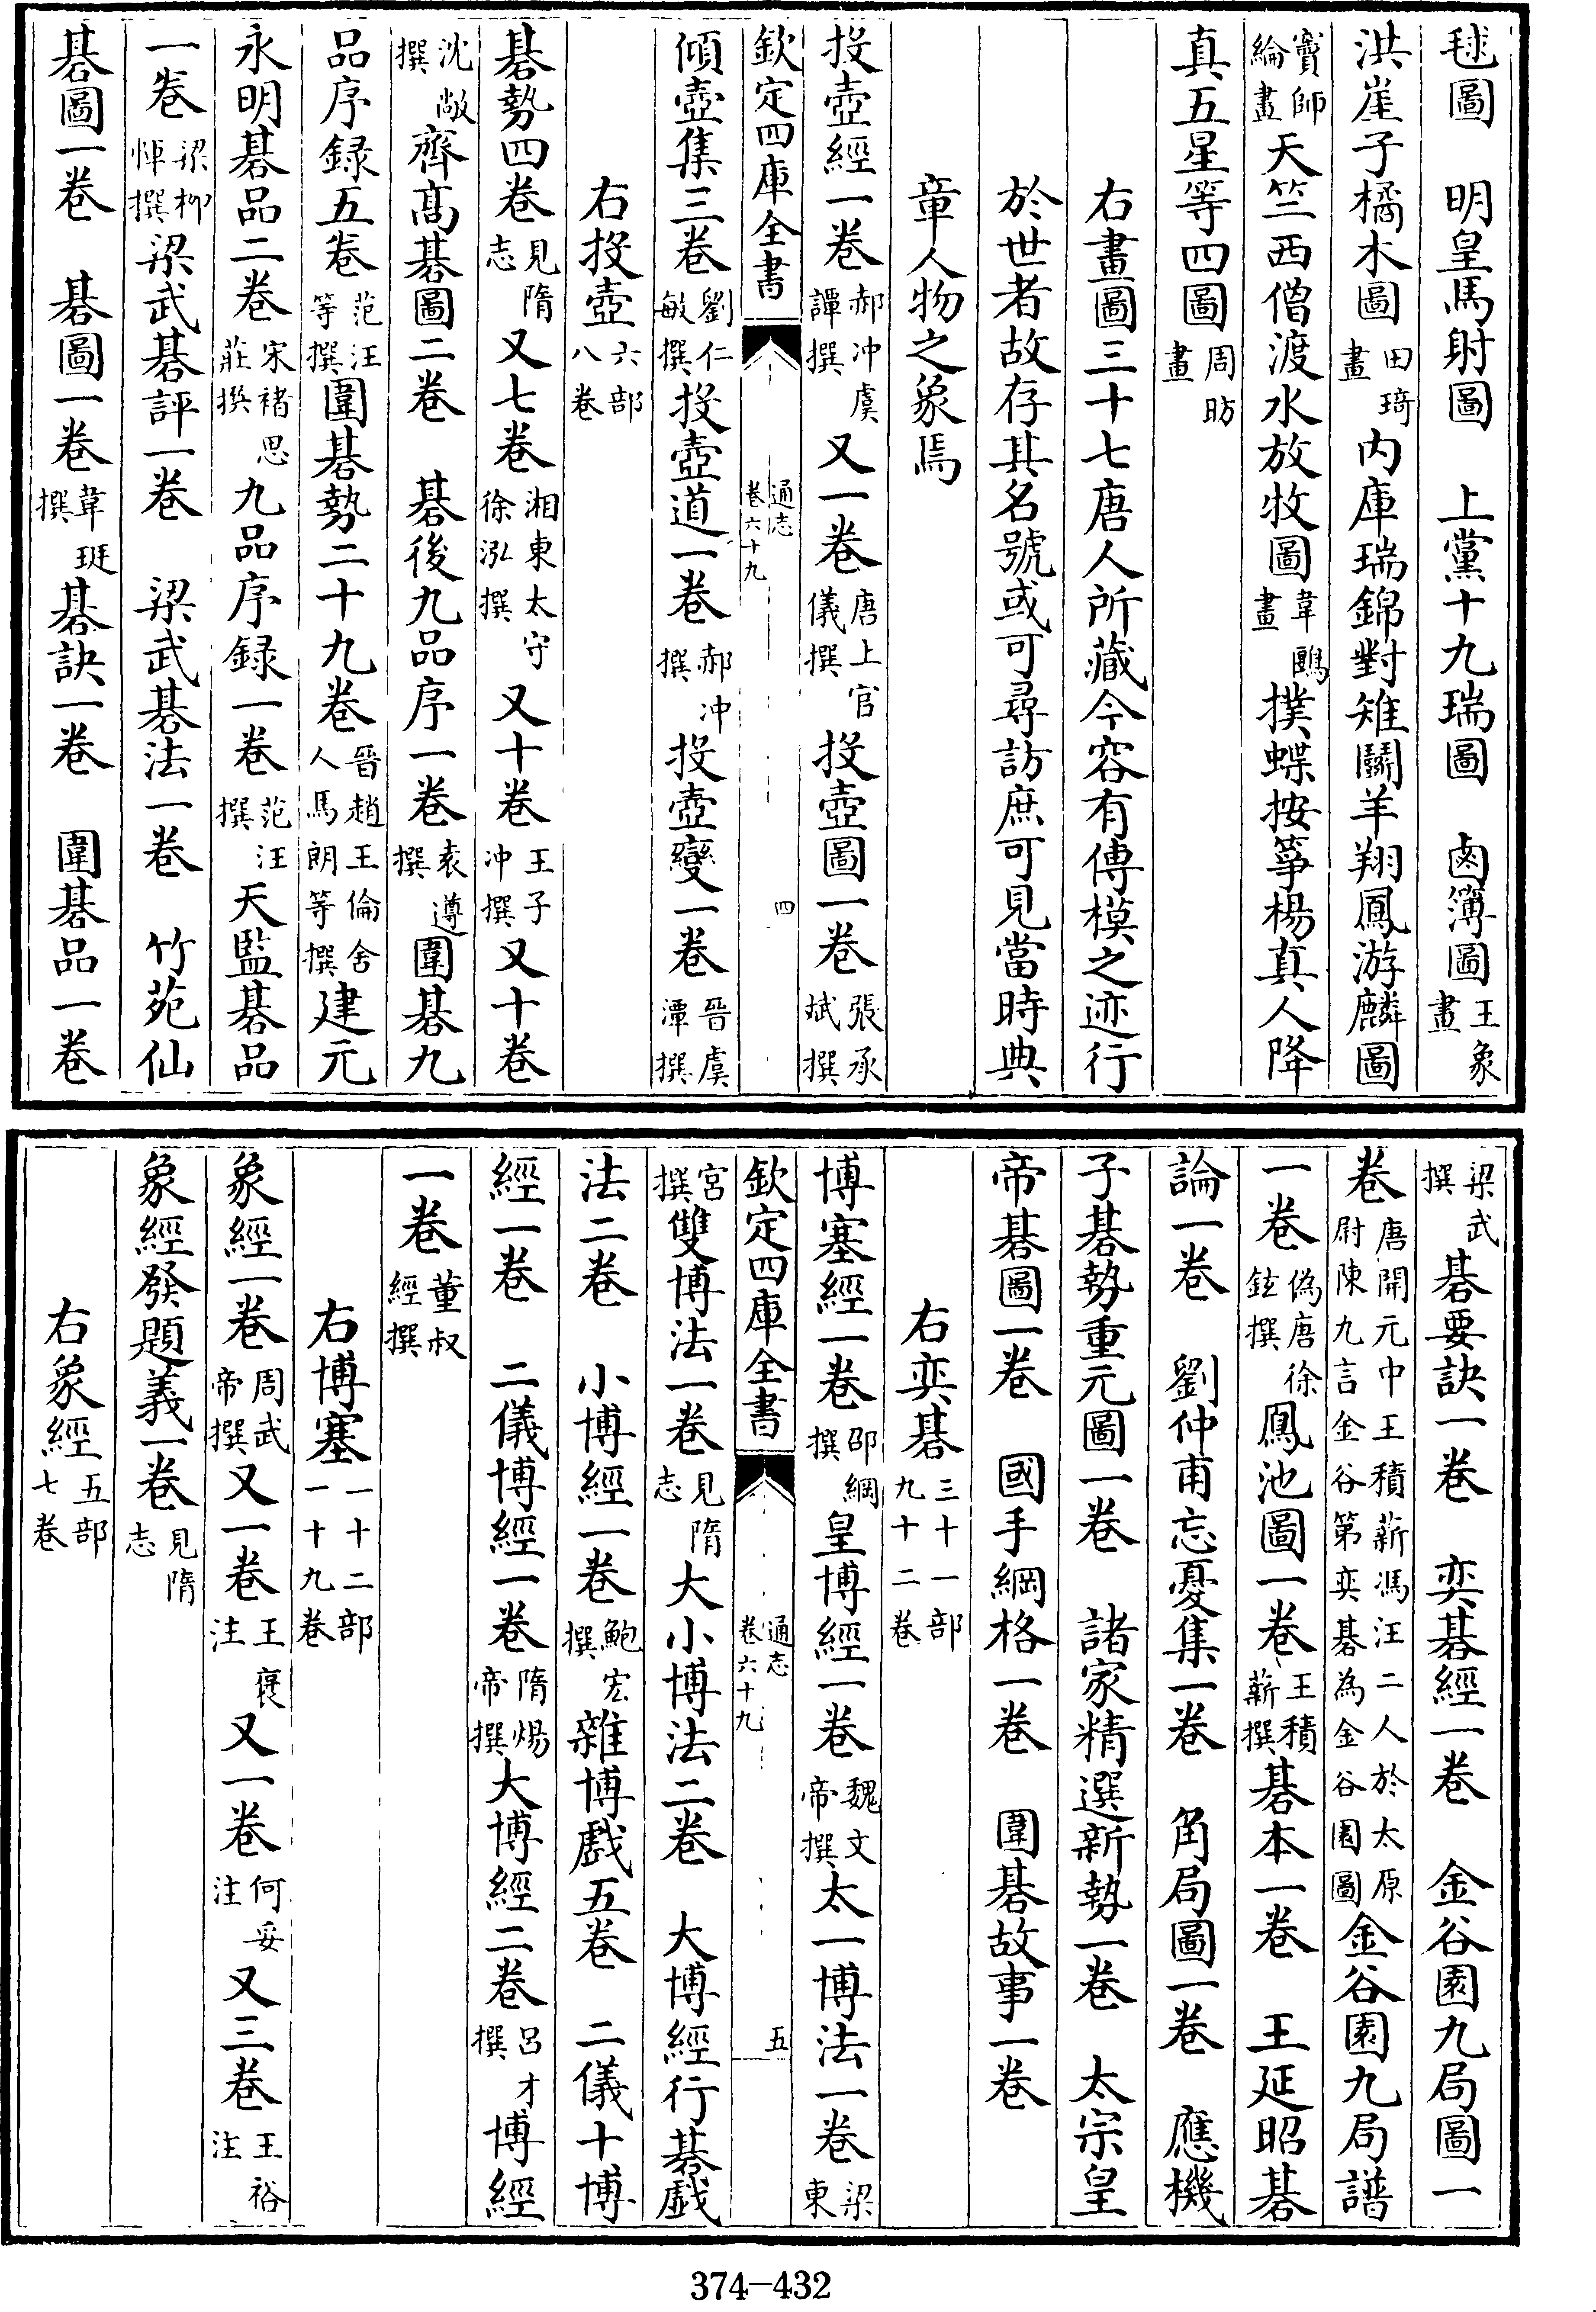 毬圖　明皇馬射圖　上黨十九瑞圖　鹵簿圖王象畫
洪崖子橘木圖田琦畫内庫瑞錦對雉鬭羊翔鳳游麟圖
竇師綸畫天竺西僧渡水放牧圖韋鷗畫撲蝶按箏楊真人降
真五星等四圖周昉畫
右畫圖三十七唐人所藏今容有傳模之迹行
於世者故存其名號或可尋訪庶可見當時典
章人物之象焉
投壺經一卷郝冲虞譚撰又一卷唐上官儀撰投壺圖一卷張承斌撰
欽定四庫全書　通志卷六十九　四
傾壺集三卷劉仁敏撰投壺道一卷郝冲撰投壺變一卷晉虞潭撰
右投壺六部八卷
碁勢四卷見隋志又七卷湘東太守徐泓撰又十卷王子冲撰又十卷
沈敞撰齊高碁圖二卷　碁後九品序一卷袁遵撰圍碁九
品序録五卷范汪等撰圍碁勢二十九卷晉趙王倫舍人馬朗等撰建元
永明碁品二卷宋褚思莊撰九品序録一卷范汪撰天監碁品
一卷梁柳惲撰梁武碁評一卷　梁武碁法一卷　竹苑仙
碁圖一卷　碁圖一卷韋珽撰碁訣一卷　圍碁品一卷
梁武撰碁要訣一卷　奕碁經一卷　金谷園九局圖一
卷唐開元中王積薪馮汪二人於太原尉陳九言金谷第奕碁為金谷園圖金谷園九局譜
一卷偽唐徐鉉撰鳳池圖一卷王積薪撰碁本一卷　王延昭碁
論一卷　劉仲甫忘憂集一卷　角局圖一卷　應機
子碁勢重元圖一卷　諸家精選新勢一卷　太宗皇
帝碁圖一卷　國手綱格一卷　圍碁故事一卷
右奕碁三十一部九十二卷
博塞經一卷邵綱撰皇博經一卷魏文帝撰太一博法一卷梁東
欽定四庫全書　通志卷六十九　五
宮撰雙博法一卷見隋志大小博法二卷　大博經行碁戲
法二卷　小博經一卷鮑宏撰雜博戲五卷　二儀十博
經一卷　二儀博經一卷隋煬帝撰大博經二卷呂才撰博經
一卷董叔經撰
右博塞一十二部一十九卷
象經一卷周武帝撰又一卷王褒注又一卷何妥注又三卷王裕注
象經發題義一卷見隋志
右象經五部七卷
374—432